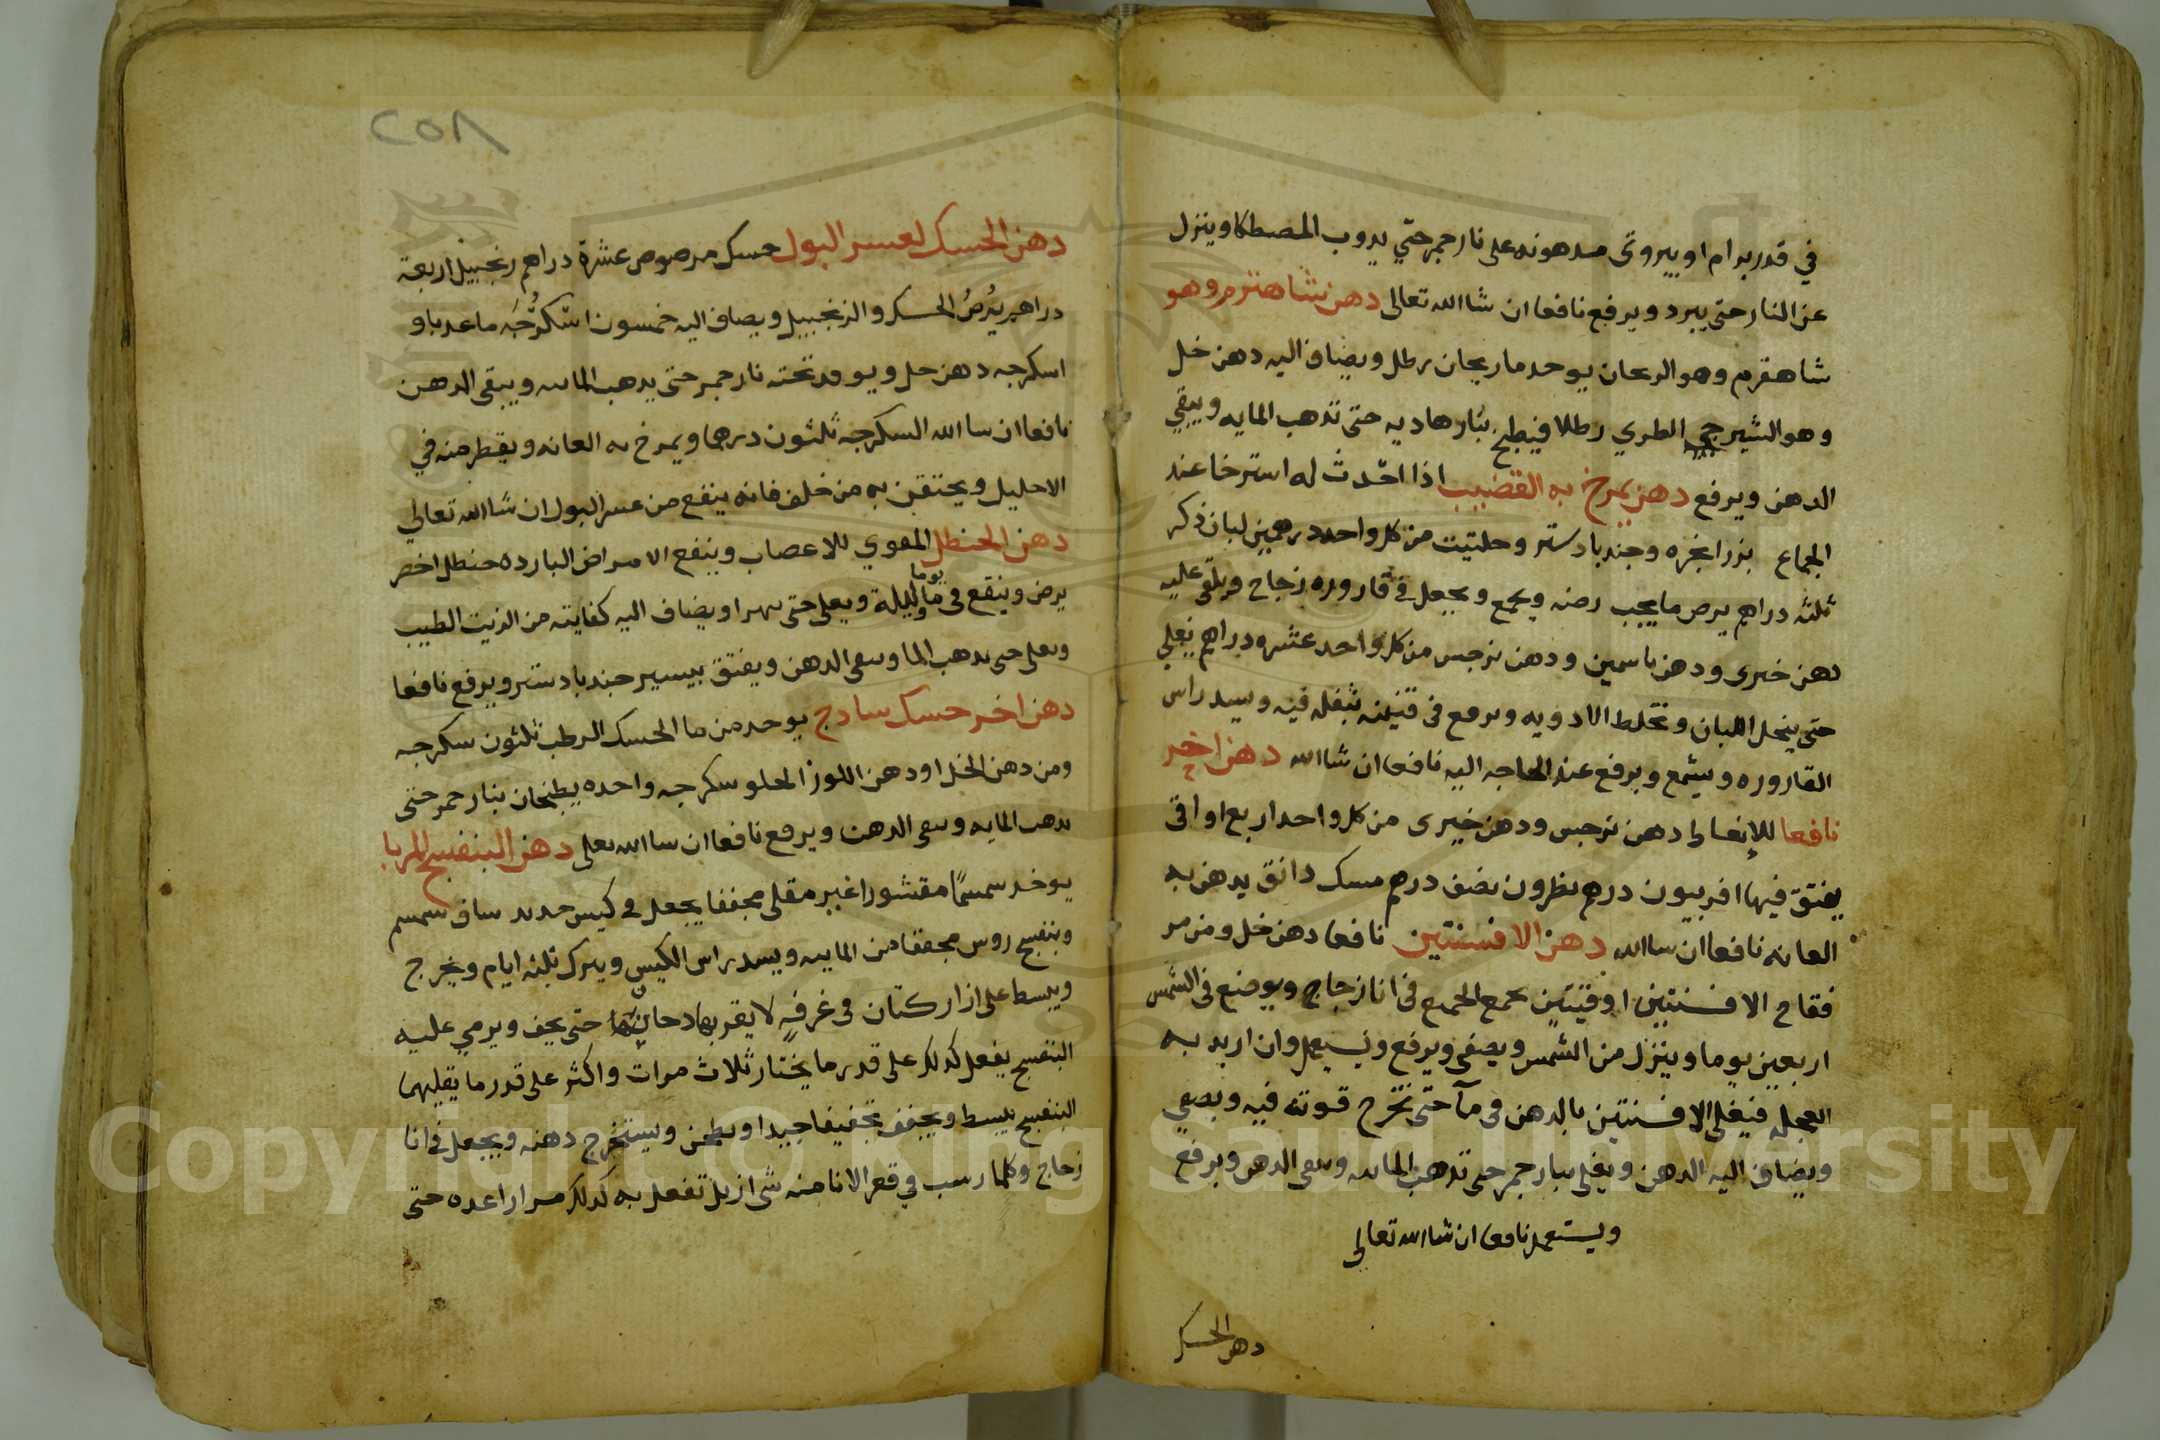 في قدر برام او بيروتى مدهونه على نار جمر حتي يدوب المصطكا وينزل
عن النار حتى يبرد ويرفع نافعا ان شا الله تعالى دهن شاهترم وهو
شاهقرم وهو الريحان يوحد ما ريحان رطل ويضاف اليه دهن خل
وهو الشيرج الطري رطلا فيطبخ بنار هاديه حتى تذهب المايه ويبقي
الدهن ويرفع دهن يمرخ به القضيب اذا احدث له استرخا عند
الجماع بزر انجره وجندبادستر وحلتيت من كل واحد درهمين لبان ذكر
ثلثه دراهم يرص ما يجب رضه ويجمع ويجعل في قاروره زجاج ويلقى عليه
دهن خيرى ودهن ياسمين ودهن نرجس من كل واحد عشره دراهم يغلي
حتى ينحل اللبان وتختلط الادويه ويرفع فى قنينه بثفله فيه ويسد راس
القاروره ويشمع ويرفع عند الحاجه اليه نافعا ان شا الله دهن اخر
نافعا للإنعاط دهن نرجس ودهن خيرى من كل واحد اربع اواقى
يفتق فيها افربيون درهم نطرون نصف درهم مسك دانق يدهن به
العانه نافعا ان سا الله دهن الافسنتين نافعا دهن خل ومن مر
فقاح الافسنتين اوقيتين يجمع الجميع فى انا زجاج ويوضع فى الشمس
اربعين يوما وينزل من الشمس ويصفى ويرفع ويستعمل وان اريد به
العجله فيغلى الافسنتين بالدهن فى مآ حتى تخرج قوته فيه ويصفي
ويضاف اليه الدهن ويغلى بنار جمر حتى تذهب المايه ويبقى الدهن ويرفع
ويستعمل نافعا ان شا الله تعالى
دهن الحسك
٢٥٨
دهن الحسك لعسر البول حسك مرصوص عشرة دراهم زنجبيل اربعة
دراهم يُرضُ الحسك والزنجبيل ويضاف اليه خمسون اسُكرُّجَه ما عدبا و
اسكرجه دهن حل ويوقد تحته نار جمر حتى يدهب المايه ويبقى الدهن
نافعا ان سا الله السكرجه ثلثون درهما ويمرخ به العانه ويقطر منه في
الاحليل ويحتقن به من خلف فانه ينفع من عسر البول ان شا الله تعالي
دهن الحنظل المقوي للاعصاب وينفع الامراض البارده حنظل اخضر
يرض وينقع في ما يوما وليلة ويغلى حتى يهرا ويضاف اليه كفايته من الزيت الطيب
ويغلى حتى يدهب الما ويبقى الدهن ويفتق بيسير جندبادستر ويرفع نافعا
دهن اخر حسك سادج يوحد من ما الحسك الرطب ثلثون سكرجه
ومن دهن الخل او دهن اللوز الحلو سكرجه واحده يطبخان بنار جمر حتى
يدهب المايه ويبقى الدهن ويرفع نافعا ان سا الله تعلى دهن البنفسج المربا
يوخد سمسمًا مقشورا غير مقلى مجففا يجعل فى كيس جديد ساف سمسم
وبنفسج روس مجففا من المايه ويسد راس الكيس ويترك ثلثه ايام ويخرج
ويبسط على ازار كتان فى غرفه لا يقربها دحان حتى يجف ويرمي عليه
البنفسج يفعل كدلك على قدر ما يختار ثلاث مرات واكثر على قدر ما يقليها
البنفسج يبسط ويجفف تجفيفا جيدا ويطحن ويستخرج دهنه ويجعل في انا
زجاج وكلما رسب في قعر الانا منه شى ازيل تفعل به كدلك مرارا عده حتى